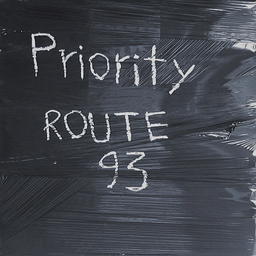 Priority
ROUTE
93